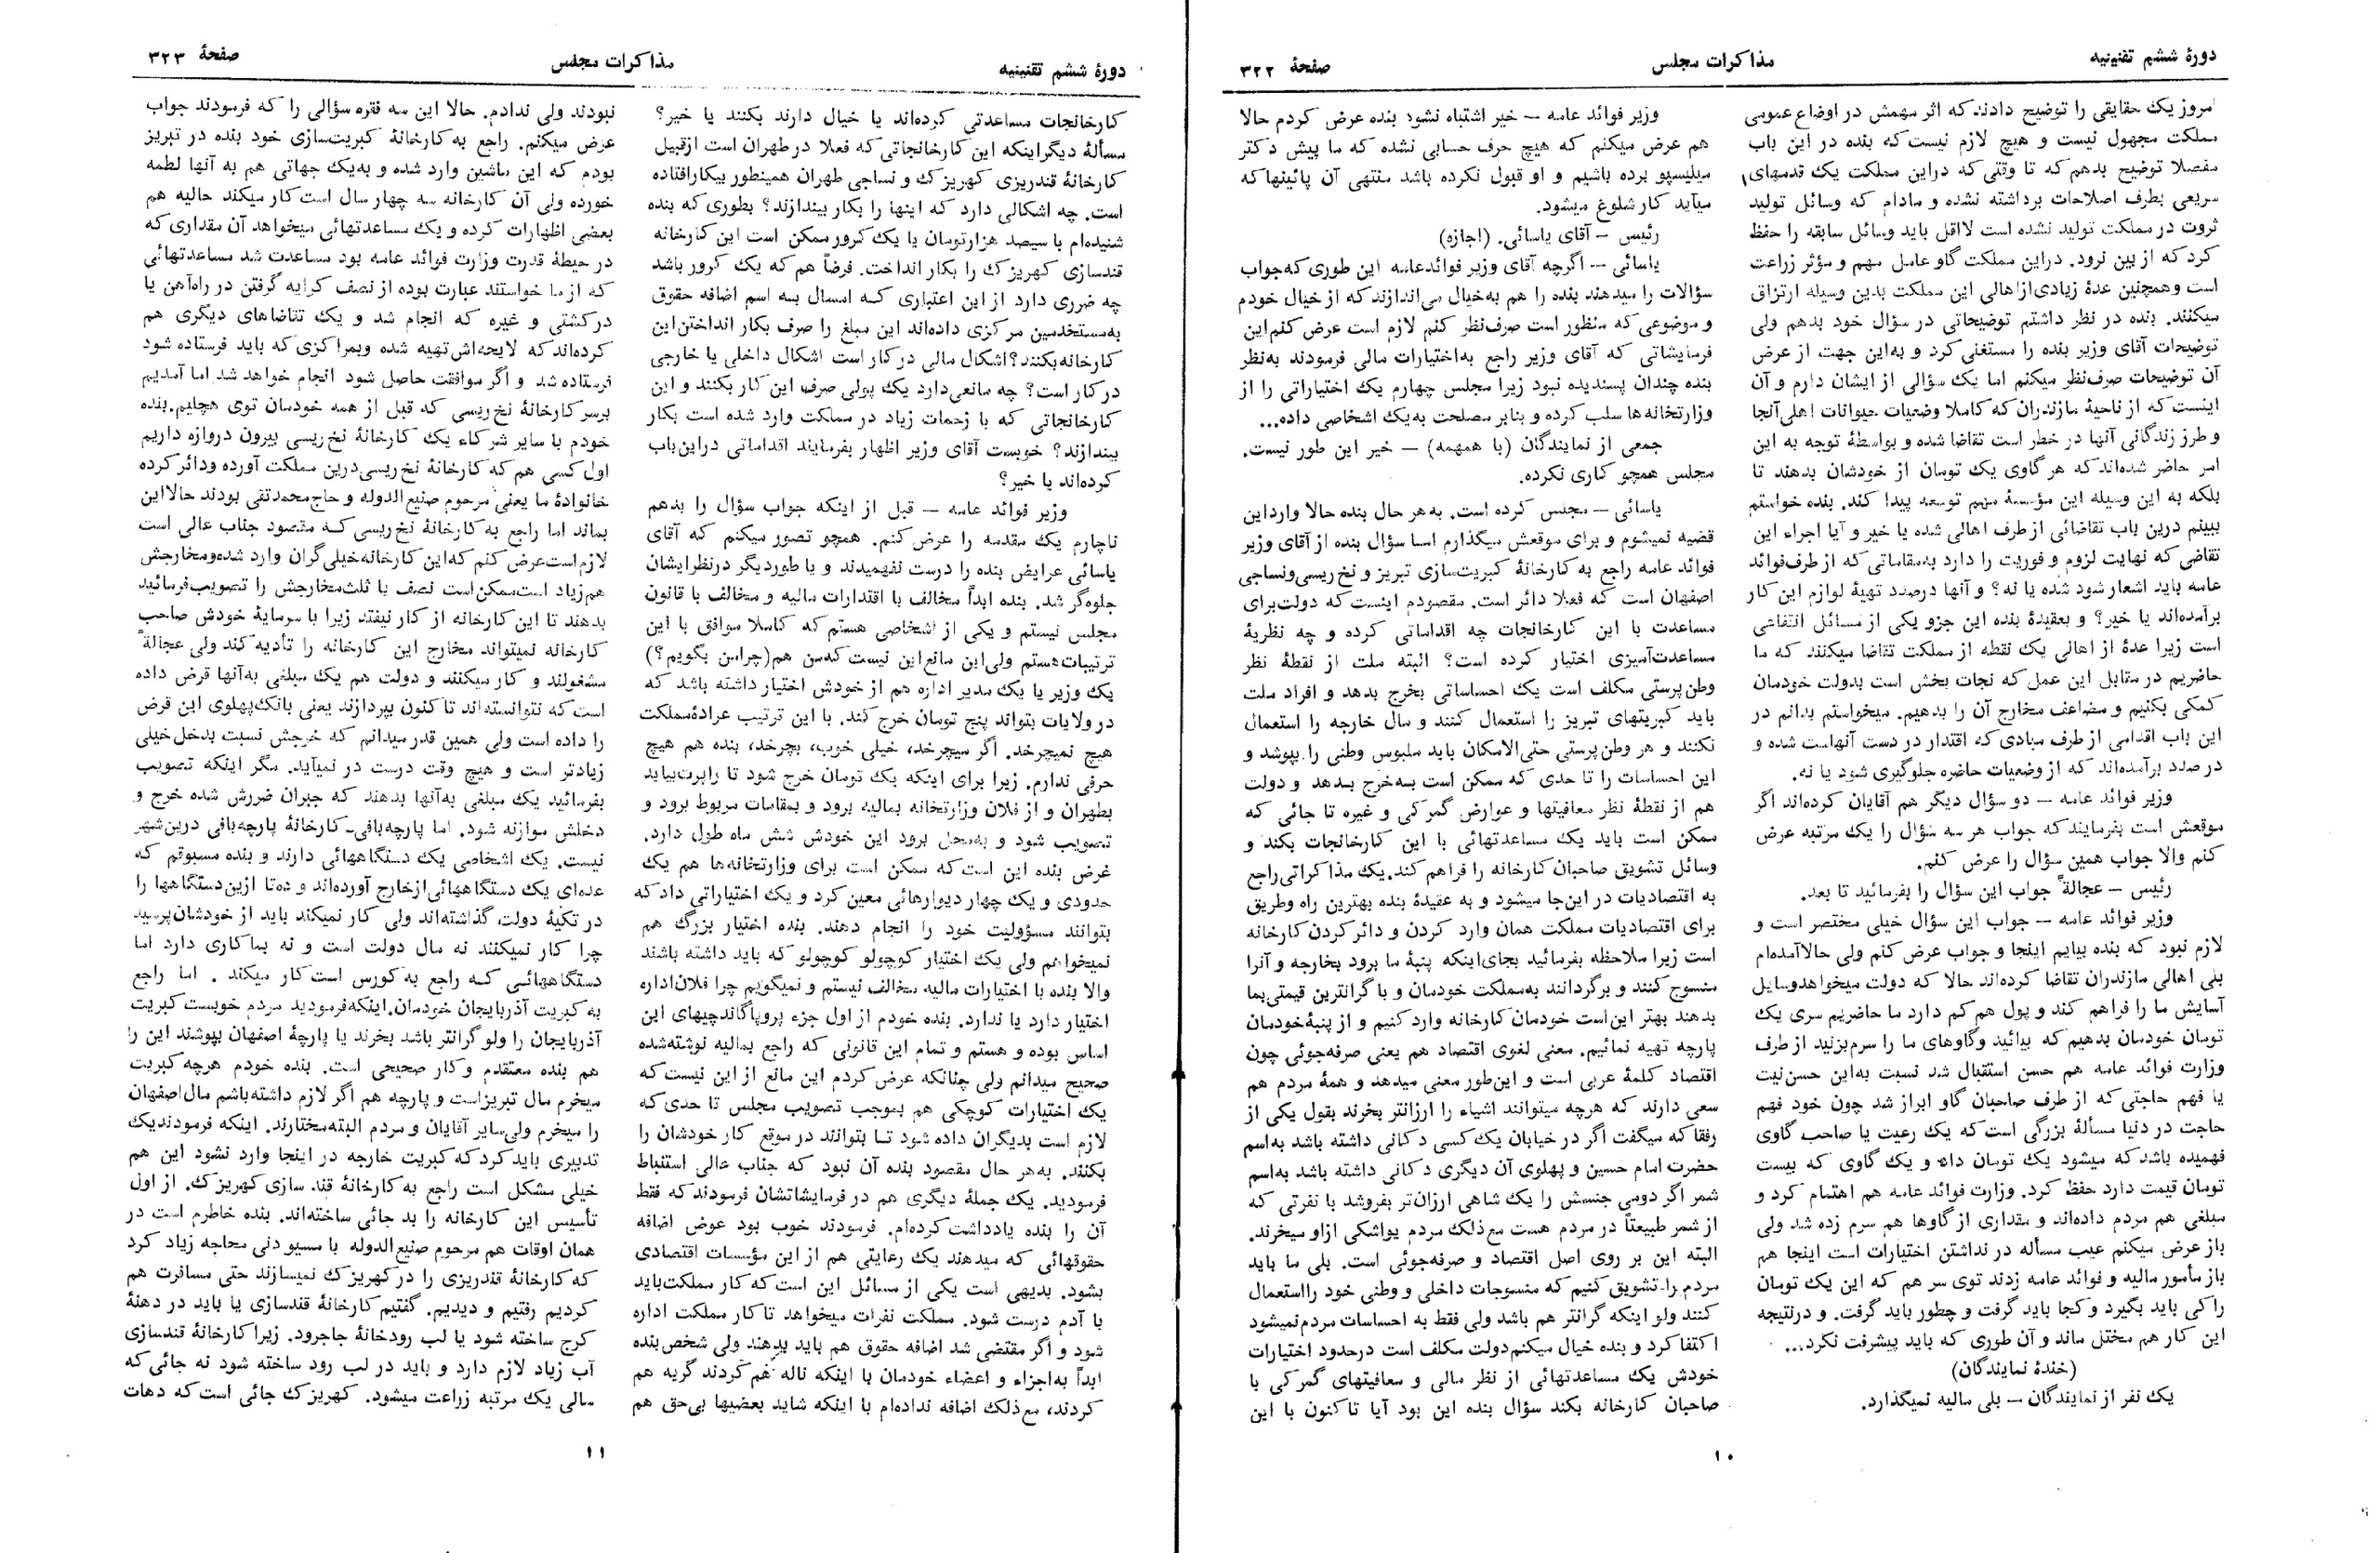 دورهٔ ششم تقنینیه
مذاکرات مجلس
صفحهٔ ۳۲۲
امروز یک حقایقی را توضیح دادند که اثر مهمش در اوضاع عمومی
مملکت مجهول نیست و هیچ لازم نیست که بنده در این باب
مفصلا توضیح بدهم که تا وقتی که دراین مملکت یک قدمهای
سریعی بطرف اصلاحات برداشته نشده و مادام که وسائل تولید
ثروت در مملکت تولید نشده است لااقل باید وسائل سابقه را حفظ
کرد که از بین نرود. دراین مملکت گاو عامل مهم و مؤثر زراعت
است و همچنین عدهٔ زیادی از اهالی این مملکت بدین وسیله ارتزاق
میکنند. بنده در نظر داشتم توضیحاتی در سؤال خود بدهم ولی
توضیحات آقای وزیر بنده را مستغنی کرد و به‌این جهت از عرض
آن توضیحات صرف‌نظر میکنم اما یک سؤالی از ایشان دارم و آن
اینست که از ناحیهٔ مازندران که کاملا وضعیات حیوانات اهلی آنجا
و طرز زندگانی آنها در خطر است تقاضا شده و بواسطهٔ توجه به این
امر حاضر شده‌اند که هر گاوی یک تومان از خودشان بدهند تا
بلکه به این وسیله این مؤسسهٔ مهم توسعه پیدا کند. بنده خواستم
ببینم درین باب تقاضائی از طرف اهالی شده یا خیر و آیا اجراء این
تقاضی که نهایت لزوم و فوریت را دارد به‌مقاماتی که از طرف فوائد
عامه باید اشعار شود شده یا نه؟ و آنها درصدد تهیهٔ لوازم این کار
برآمده‌اند یا خیر؟ و بعقیدهٔ بنده این جزو یکی از مسائل اتفاقی
است زیرا عدهٔ از اهالی یک نقطه از مملکت تقاضا میکنند که ما
حاضریم در مقابل این عمل که نجات بخش است بدولت خودمان
کمکی بکنیم و مضاعف مخارج آن را بدهیم. میخواستم بدانم در
این باب اقدامی از طرف مبادی که اقتدار در دست آنهاست شده و
در صدد برآمده‌اند که از وضعیات حاضره جلوگیری شود یا نه.
وزیر فوائد عامه – دو سؤال دیگر هم آقایان کرده‌اند اگر
موقعش است بفرمایند که جواب هر سه سؤال را یک مرتبه عرض
کنم والا جواب همین سؤال را عرض کنم.
رئیس – عجالةً جواب این سؤال را بفرمائید تا بعد.
وزیر فوائد عامه – جواب این سؤال خیلی مختصر است و
لازم نبود که بنده بیایم اینجا و جواب عرض کنم ولی حالا آمده‌ام
بلی اهالی مازندران تقاضا کرده‌اند حالا که دولت میخواهد وسایل
آسایش ما را فراهم کند و پول هم کم دارد ما حاضریم سری یک
تومان خودمان بدهیم که بیائید و گاوهای ما را سرم بزنید از طرف
وزارت فوائد عامه هم حسن استقبال شد نسبت به‌این حسن نیت
یا فهم حاجتی که از طرف صاحبان گاو ابراز شد چون خود فهم
حاجت در دنیا مسألهٔ بزرگی است که یک رعیت یا صاحب گاوی
فهمیده باشد که میشود یک تومان داد و یک گاوی که بیست
تومان قیمت دارد حفظ کرد. وزارت فوائد عامه هم اهتمام کرد و
مبلغی هم مردم داده‌اند و مقداری از گاوها هم سرم زده شد ولی
باز عرض میکنم عیب مسأله در نداشتن اختیارات است اینجا هم
باز مأمور مالیه و فوائد عامه زدند توی سر هم که این یک تومان
را کی باید بگیرد و کجا باید گرفت و چطور باید گرفت. و درنتیجه
این کار هم مختل ماند و آن طوری که باید پیشرفت نکرد...
(خندهٔ نمایندگان)
یک نفر از نمایندگان – بلی مالیه نمیگذارد.
وزیر فوائد عامه – خیر اشتباه نشود بنده عرض کردم حالا
هم عرض میکنم که هیچ حرف حسابی نشده که ما پیش دکتر
میلیسپو برده باشیم و او قبول نکرده باشد منتهی آن پائینها که
میآید کار شلوغ میشود.
رئیس – آقای یاسائی. (اجازه)
یاسائی – اگرچه آقای وزیر فوائدعامه این طوری که جواب
سؤالات را میدهند بنده را هم به‌خیال می‌اندازند که از خیال خودم
و موضوعی که منظور است صرف‌نظر کنم لازم است عرض کنم این
فرمایشاتی که آقای وزیر راجع به‌اختیارات مالی فرمودند به‌نظر
بنده چندان پسندیده نبود زیرا مجلس چهارم یک اختیاراتی را از
وزارتخانه‌ها سلب کرده و بنابر مصلحت به‌یک اشخاصی داده...
جمعی از نمایندگان (با همهمه) – خیر این طور نیست.
مجلس همچو کاری نکرده.
یاسائی – مجلس کرده است. به‌هر حال بنده حالا وارد این
قضیه نمیشوم و برای موقعش میگذارم اما سؤال بنده از آقای وزیر
فوائد عامه راجع به کارخانهٔ کبریت‌سازی تبریز و نخ‌ریسی و نساجی
اصفهان است که فعلا دائر است. مقصودم اینست که دولت برای
مساعدت با این کارخانجات چه اقداماتی کرده و چه نظریهٔ
مساعدت‌آمیزی اختیار کرده است؟ البته ملت از نقطهٔ نظر
وطن‌پرستی مکلف است یک احساساتی بخرج بدهد و افراد ملت
باید کبریتهای تبریز را استعمال کنند و مال خارجه را استعمال
نکنند و هر وطن‌پرستی حتی‌الامکان باید ملبوس وطنی را بپوشد و
این احساسات را تا حدی که ممکن است به‌خرج بدهد و دولت
هم از نقطهٔ نظر معافیتها و عوارض گمرکی و غیره تا جائی که
ممکن است باید یک مساعدتهائی با این کارخانجات بکند و
وسائل تشویق صاحبان کارخانه را فراهم کند. یک مذاکراتی راجع
به اقتصادیات در این‌جا میشود و به عقیدهٔ بنده بهترین راه وطریق
برای اقتصادیات مملکت همان وارد کردن و دائر کردن کارخانه
است زیرا ملاحظه بفرمائید بجای‌اینکه پنبهٔ ما برود بخارجه و آنرا
منسوج کنند و برگردانند به‌مملکت خودمان و با گرانترین قیمتی بما
بدهند بهتر این‌است خودمان کارخانه وارد کنیم و از پنبهٔ‌خودمان
پارچه تهیه نمائیم. معنی لغوی اقتصاد هم یعنی صرفه‌جوئی چون
اقتصاد کلمهٔ عربی است و این‌طور معنی میدهد و همهٔ مردم هم
سعی دارند که هرچه میتوانند اشیاء را ارزانتر بخرند بقول یکی از
رفقا که میگفت اگر در خیابان یک کسی دکانی داشته باشد به‌اسم
حضرت امام حسین و پهلوی آن دیگری دکانی داشته باشد به‌اسم
شمر اگر دومی جنسش را یک شاهی ارزان‌تر بفروشد با نفرتی که
از شمر طبیعتاً در مردم هست مع‌ذلک مردم یواشکی ازاو میخرند.
البته این بر روی اصل اقتصاد و صرفه‌جوئی است. بلی ما باید
مردم را تشویق کنیم که منسوجات داخلی و وطنی خود رااستعمال
کنند ولو اینکه گرانتر هم باشد ولی فقط به احساسات مردم نمیشود
اکتفا کرد و بنده خیال میکنم دولت مکلف است درحدود اختیارات
خودش یک مساعدتهائی از نظر مالی و معافیتهای گمرکی با
صاحبان کارخانه بکند سؤال بنده این بود آیا تاکنون با این
۱۰
دورهٔ ششم تقنینیه
مذاکرات مجلس
صفحهٔ ۳۲۳
کارخانجات مساعدتی کرده‌اند یا خیال دارند بکنند یا خیر؟
مسألهٔ دیگراینکه این کارخانجاتی که فعلا در طهران است ازقبیل
کارخانهٔ قندریزی کهریزک و نساجی طهران همینطور بیکارافتاده
است. چه اشکالی دارد که اینها را بکار بیندازند؟ بطوری که بنده
شنیده‌ام با سیصد هزارتومان یا یک کرور ممکن است این کارخانه
قندسازی کهریزک را بکار انداخت. فرضاً هم که یک کرور باشد
چه ضرری دارد از این اعتباری که امسال به اسم اضافه حقوق
به‌مستخدمین مرکزی داده‌اند این مبلغ را صرف بکار انداختن این
کارخانه بکنند؟ اشکال مالی در کار است اشکال داخلی یا خارجی
در کار است؟ چه مانعی دارد یک پولی صرف این کار بکنند و این
کارخانجاتی که با زحمات زیاد در مملکت وارد شده است بکار
بیندازند؟ خوبست آقای وزیر اظهار بفرمایند اقداماتی دراین باب
کرده‌اند یا خیر؟
وزیر فوائد عامه – قبل از اینکه جواب سؤال را بدهم
ناچارم یک مقدمه را عرض کنم. همچو تصور میکنم که آقای
یاسائی عرایض بنده را درست نفهمیدند و یا طوردیگر درنظرایشان
جلوه‌گر شد. بنده ابداً مخالف با اقتدارات مالیه و مخالف با قانون
مجلس نیستم و یکی از اشخاصی هستم که کاملا موافق با این
ترتیبات هستم ولی این مانع این نیست که من هم (چرا من بگویم؟)
یک وزیر یا یک مدیر اداره هم از خودش اختیار داشته باشد که
در ولایات بتواند پنج تومان خرج کند. با این ترتیب عرادهٔ مملکت
هیچ نمیچرخد. اگر میچرخد، خیلی خوب، بچرخد، بنده هم هیچ
حرفی ندارم. زیرا برای اینکه یک تومان خرج شود تا راپرت بیاید
بطهران و از فلان وزارتخانه بمالیه برود و بمقامات مربوط برود و
تصویب شود و به‌محل برود این خودش شش ماه طول دارد.
غرض بنده این است که ممکن است برای وزارتخانه‌ها هم یک
حدودی و یک چهار دیوارهائی معین کرد و یک اختیاراتی داد که
بتوانند مسؤولیت خود را انجام دهند. بنده اختیار بزرگ هم
نمیخواهم ولی یک اختیار کوچولو کوچولو که باید داشته باشند
والا بنده با اختیارات مالیه مخالف نیستم و نمیگویم چرا فلان اداره
اختیار دارد یا ندارد. بنده خودم از اول جزء پروپاگاندچیهای این
اساس بوده و هستم و تمام این قانونی که راجع بمالیه نوشته‌شده
صحیح میدانم ولی چنانکه عرض کردم این مانع از این نیست که
یک اختیارات کوچکی هم بموجب تصویب مجلس تا حدی که
لازم است بدیگران داده شود تا بتوانند در موقع کار خودشان را
بکنند. به‌هر حال مقصود بنده آن نبود که جناب عالی استنباط
فرمودید. یک جملهٔ دیگری هم در فرمایشاتشان فرمودند که فقط
آن را بنده یادداشت کرده‌ام. فرمودند خوب بود عوض اضافه
حقوقهائی که میدهند یک رعایتی هم از این مؤسسات اقتصادی
بشود. بدیهی است یکی از مسائل این است که کار مملکت باید
با آدم درست شود. مملکت نفرات میخواهد تا کار مملکت اداره
شود و اگر مقتضی شد اضافه حقوق هم باید بدهند ولی شخص بنده
ابداً به‌اجزاء و اعضاء خودمان با اینکه ناله هم کردند گریه هم
کردند، مع‌ذلک اضافه نداده‌ام با اینکه شاید بعضیها بی‌حق هم
نبودند ولی ندادم. حالا این سه فقره سؤالی را که فرمودند جواب
عرض میکنم. راجع به کارخانهٔ کبریت‌سازی خود بنده در تبریز
بودم که این ماشین وارد شده و به‌یک جهاتی هم به آنها لطمه
خورده ولی آن کارخانه سه چهار سال است کار میکند حالیه هم
بعضی اظهارات کرده و یک مساعدتهائی میخواهد آن مقداری که
در حیطهٔ قدرت وزارت فوائد عامه بود مساعدت شد مساعدتهائی
که از ما خواستند عبارت بوده از نصف کرایه گرفتن در راه‌آهن یا
درکشتی و غیره که انجام شد و یک تقاضاهای دیگری هم
کرده‌اند که لایحه‌اش تهیه شده وبمراکزی که باید فرستاده شود
فرستاده شد و اگر موافقت حاصل شود انجام خواهد شد اما آمدیم
برسر کارخانهٔ نخ‌ریسی که قبل از همه خودمان توی هچلیم. بنده
خودم با سایر شرکاء یک کارخانهٔ نخ‌ریسی بیرون دروازه داریم
اول کسی هم که کارخانهٔ نخ‌ریسی درین مملکت آورده ودائر کرده
خانوادهٔ ما یعنی مرحوم صنیع‌الدوله و حاج‌محمدتقی بودند حالا این
بماند اما راجع به کارخانهٔ نخ‌ریسی که مقصود جناب عالی است
لازم است عرض کنم که این کارخانه خیلی گران وارد شده و مخارجش
هم زیاد است ممکن است نصف یا ثلث مخارجش را تصویب فرمائید
بدهند تا این کارخانه از کار نیفتد زیرا با سرمایهٔ خودش صاحب
کارخانه نمیتواند مخارج این کارخانه را تأدیه کند ولی عجالةً
مشغولند و کار میکنند و دولت هم یک مبلغی به‌آنها قرض داده
است که نتوانسته‌اند تا کنون بپردازند یعنی بانک‌پهلوی این قرض
را داده است ولی همین قدر میدانم که خرجش نسبت بدخل خیلی
زیادتر است و هیچ وقت درست در نمیآید. مگر اینکه تصویب
بفرمائید یک مبلغی به‌آنها بدهند که جبران ضررش شده خرج و
دخلش موازنه شود. اما پارچه‌بافی- کارخانهٔ پارچه‌بافی درین شهر
نیست. یک اشخاصی یک دستگاههائی دارند و بنده مسبوقم که
عده‌ای یک دستگاههائی ازخارج آورده‌اند و ده‌تا ازین دستگاهها را
در تکیهٔ دولت گذاشته‌اند ولی کار نمیکند باید از خودشان پرسید
چرا کار نمیکنند نه مال دولت است و نه بما کاری دارد اما
دستگاههائی که راجع به کورس است کار میکند . اما راجع
به کبریت آذربایجان خودمان. اینکه فرمودید مردم خوبست کبریت
آذربایجان را ولو گرانتر باشد بخرند یا پارچهٔ اصفهان بپوشند این را
هم بنده معتقدم و کار صحیحی است. بنده خودم هرچه کبریت
میخرم مال تبریز است و پارچه هم اگر لازم داشته‌باشم مال اصفهان
را میخرم ولی سایر آقایان و مردم البته مختارند. اینکه فرمودند یک
تدبیری باید کرد که کبریت خارجه در اینجا وارد نشود این هم
خیلی مشکل است راجع به کارخانهٔ قند سازی کهریزک. از اول
تأسیس این کارخانه را بد جائی ساخته‌اند. بنده خاطرم است در
همان اوقات هم مرحوم صنیع‌الدوله با مسیو دنی محاجه زیاد کرد
که کارخانهٔ قندریزی را در کهریزک نمیسازند حتی مسافرت هم
کردیم رفتیم و دیدیم. گفتیم کارخانهٔ قندسازی یا باید در دهنهٔ
کرج ساخته شود یا لب رودخانهٔ جاجرود. زیرا کارخانهٔ قندسازی
آب زیاد لازم دارد و باید در لب رود ساخته شود نه جائی که
سالی یک مرتبه زراعت میشود. کهریزک جائی است که دهات
۱۱